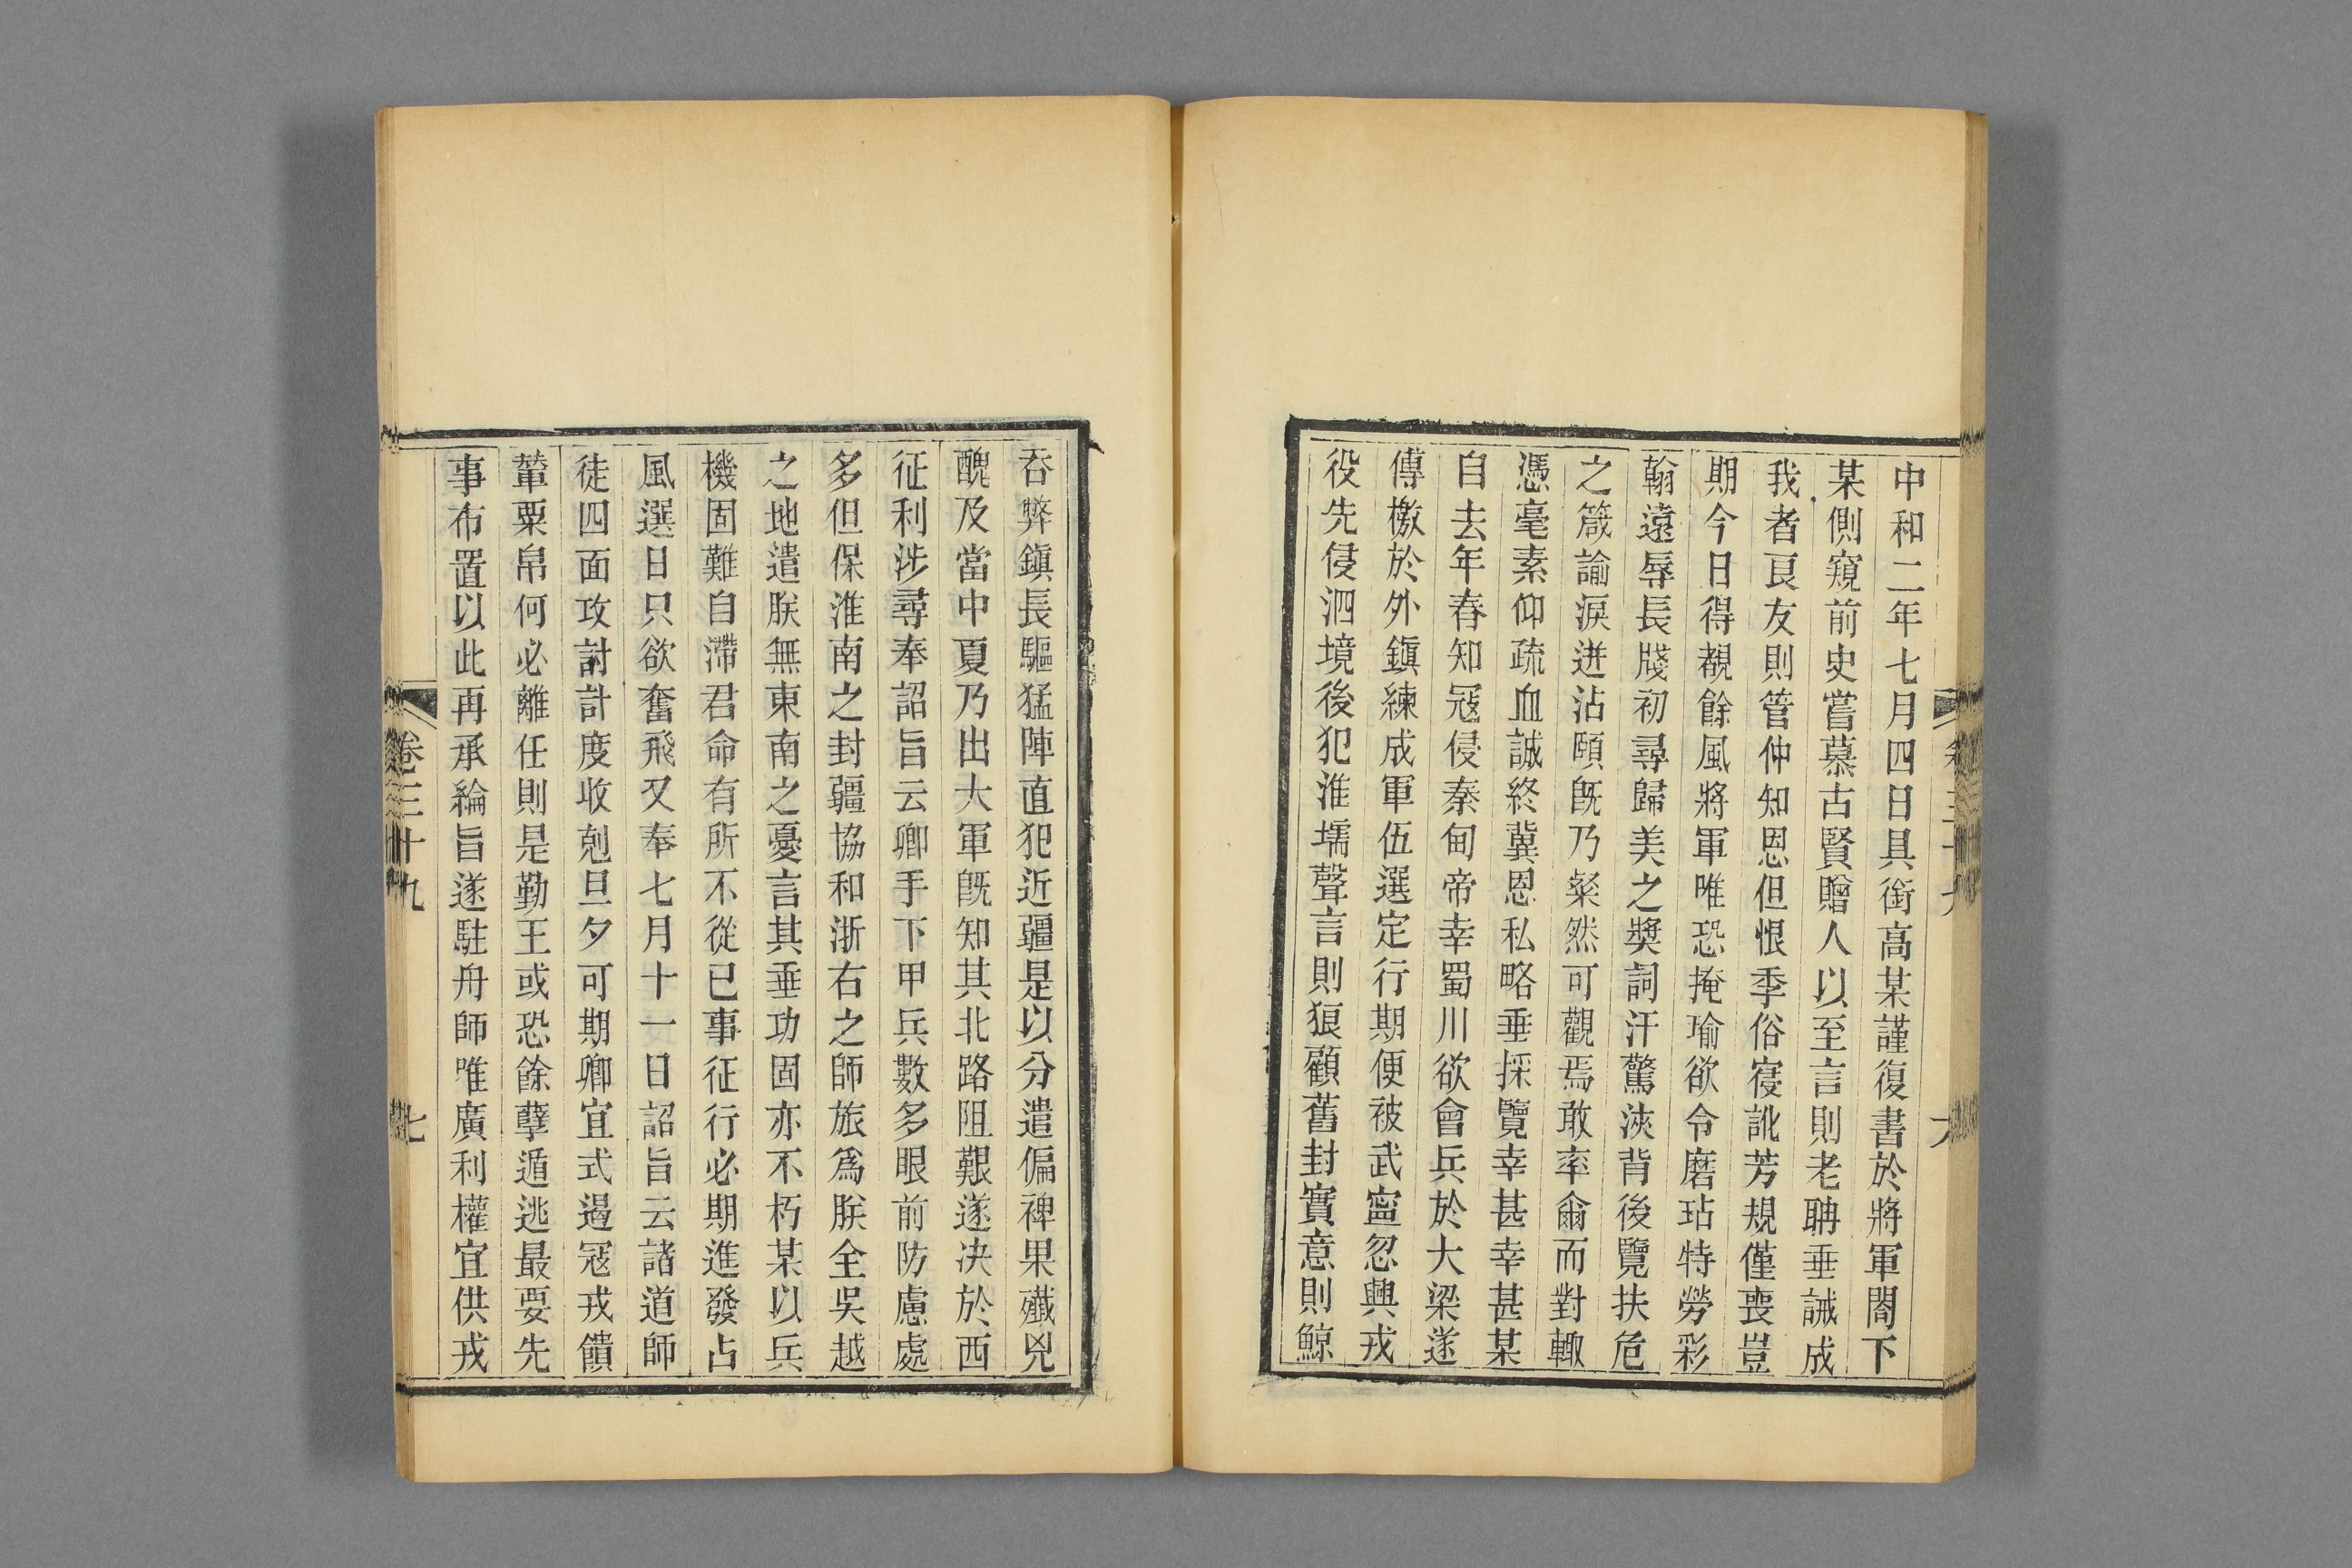 中和二年七月四日具銜高某謹復書於將軍閤下
某側窺前史嘗慕古賢贈人以至言則老聃垂誡成
我者良友則管仲知恩但恨季俗寖訛芳規僅喪豈
期今日得覩餘風將軍唯恐掩瑜欲令磨玷特勞彩
翰遠辱長牋初尋歸美之奬詞汗驚浹背後覽扶危
之箴諭淚迸沾頤旣乃粲然可觀焉敢率爾而對輙
憑毫素仰疏血誠終冀恩私略垂採覽幸甚幸甚某
自去年春知冦侵秦甸帝幸蜀川欲會兵於大梁遂
傳檄於外鎭練成軍伍選定行期便被武寧忽興戎
役先侵泗境後犯淮壖聲言則狼顧舊封實意則鯨
吞弊鎭長驅猛陣直犯近疆是以分遣偏裨果殲兇
醜及當中夏乃出大軍旣知其北路阻艱遂决於西
征利涉尋奉詔旨云卿手下甲兵數多眼前防慮處
多但保淮南之封疆協和浙右之師旅爲朕全吳越
之地遣朕無東南之憂言其垂功固亦不朽某以兵
機固難自滯君命有所不從已事征行必期進發占
風選日只欲奮飛又奉七月十一日詔旨云諸道師
徒四面攻討計度收剋旦夕可期卿宜式遏冦戎饋
輦粟帛何必離任則是勤王或恐餘孽遁逃最要先
事布置以此再承綸旨遂駐舟師唯廣利權宜供戎
卷三十九
七